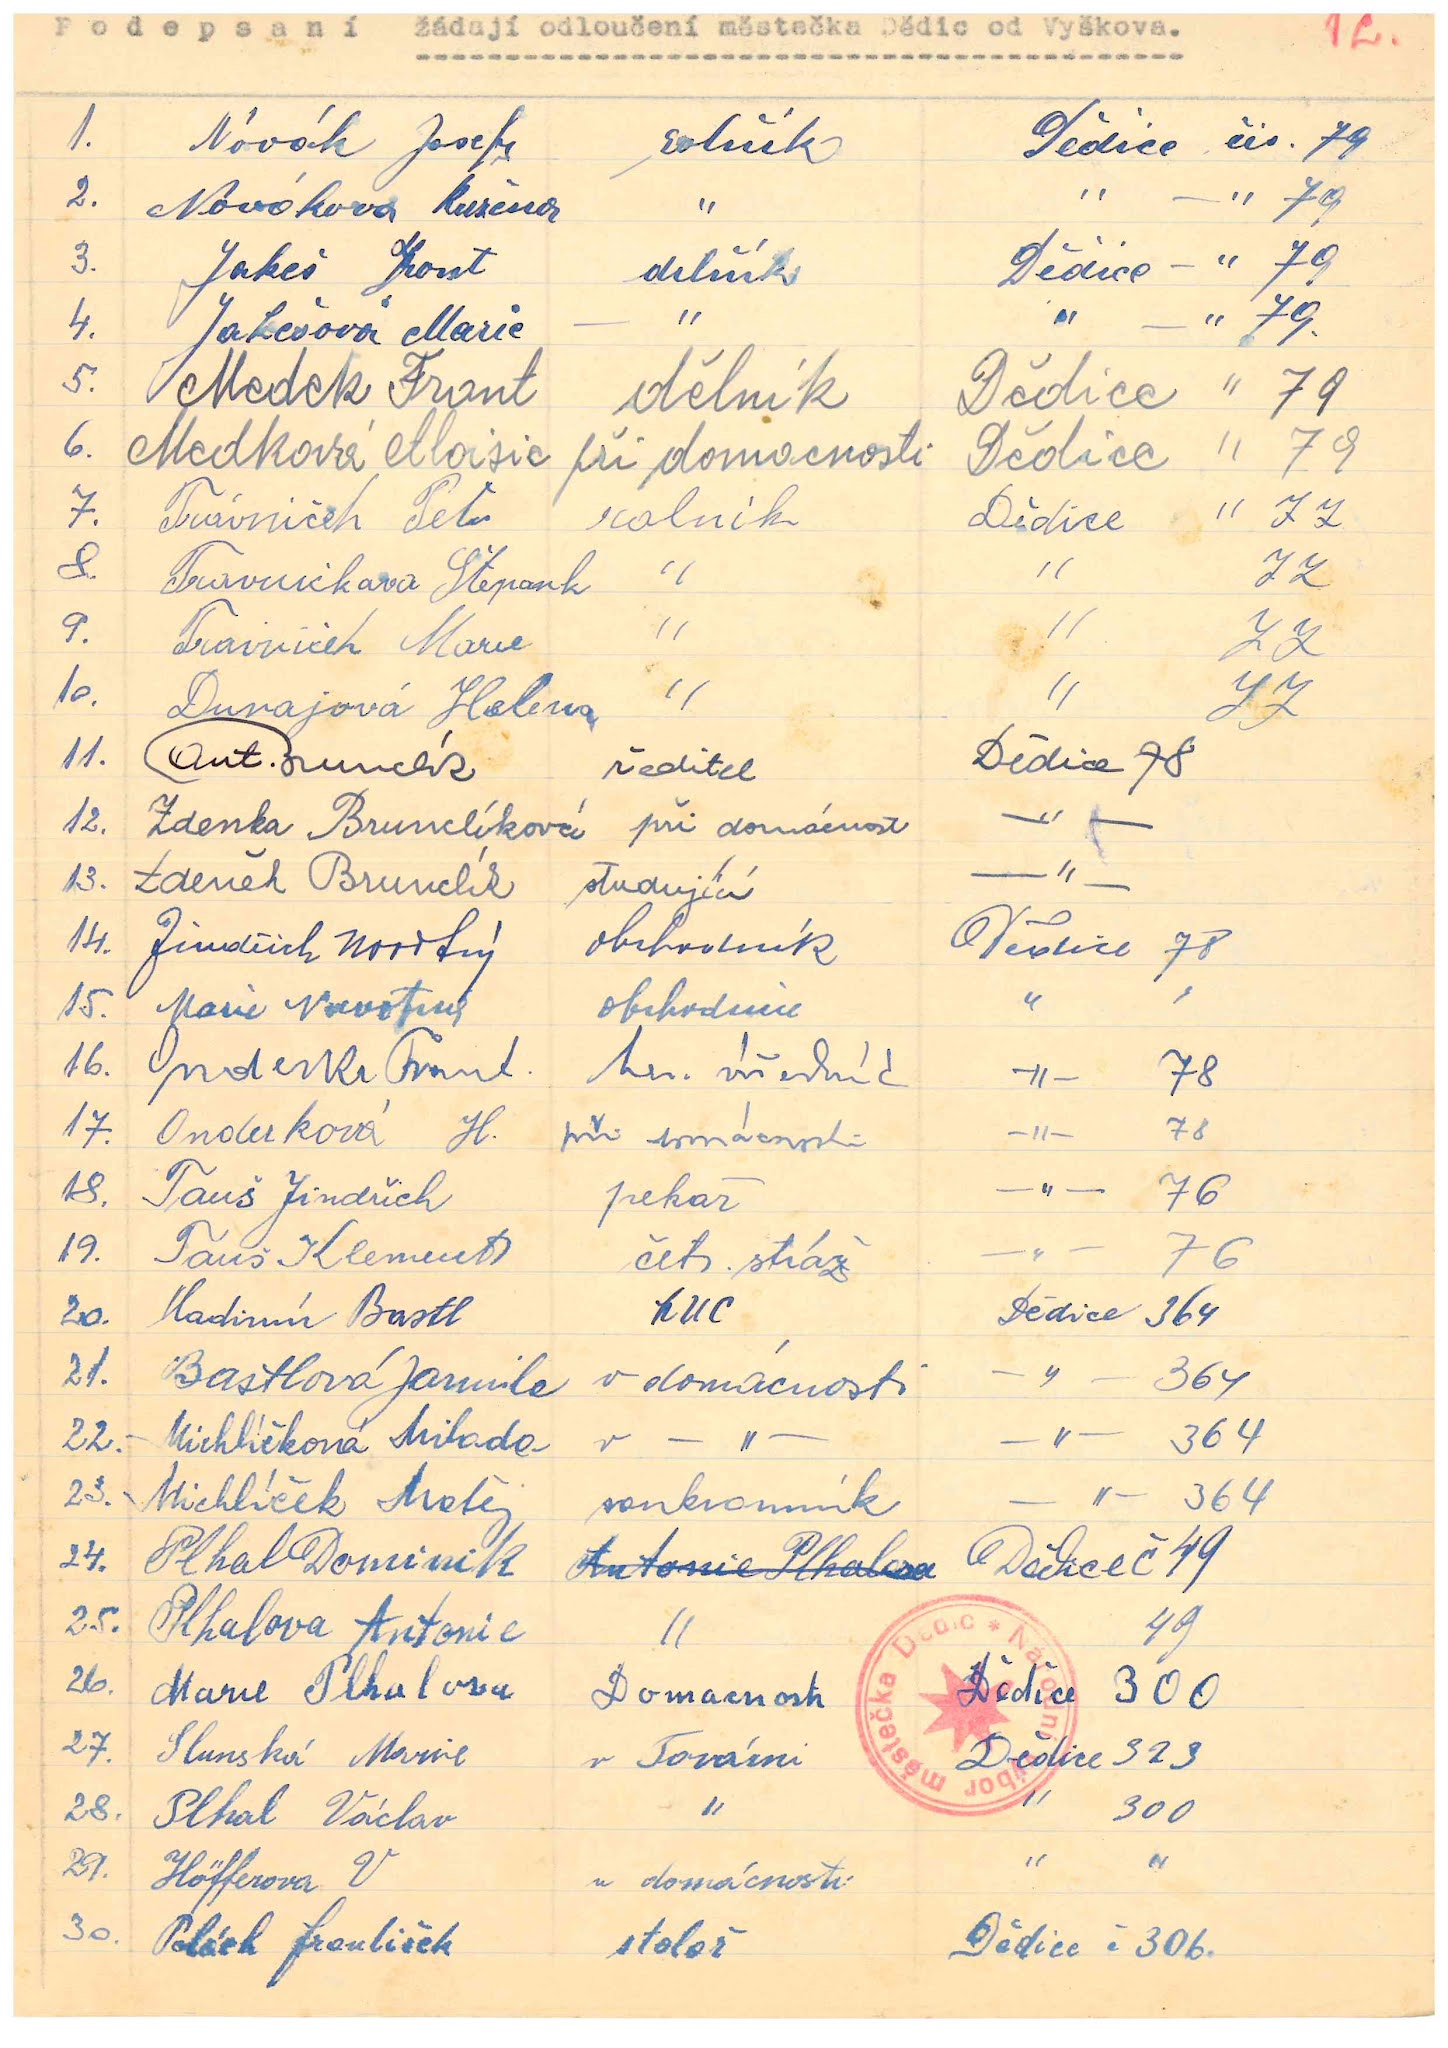 Podepsaní žádají odloučení městečka Dědic od Vyškova. 12.
1. Novák Josef rolník Dědice čis. 79
2. Nováková Růžena " " — " 79
3. Jakeš Frant dělník Dědice — " 79
4. Jakešová Marie — " " — " 79.
5. Medek Frant dělník Dědice " 79
6. Medková Aloisie při domacnosti Dědice " 79
7. Trávníček Petr rolník Dědice " 77
8. Travníckava Štěpank " " 77
9. Trávníček Marie " " 77
10. Durajová Helena " " 77
11. Ant. Brunclík ředitel Dědice 78
12. Zdenka Brunclíková při domácnost — " —
13. Zdeněk Brunclík studující — " —
14. Jindřich Novotný obchodník Dědice 78
15. Marie Novotná obchodnice " "
16. Onderka Frant. úředník — " — 78
17. Onderková H. při domácnosti — " — 78
18. Tauš Jindřich pekař — " — 76
19. Tauš Klement četn. stráž — " — 76
20. Vladimír Bastl Dědice 364
21. Bastlová Jarmila v domácnosti — " — 364
22. Michlíčková Milada v — " — — " — 364
23. Michlíček Matěj soukromník — " — 364
24. Plhal Dominik Antonie Plhalova Dědice č 49
25. Plhalova Antonie " 49
26. Marie Plhalova Domacnost Dědice 300
27. Slunská Marie v Továrni Dědice 323
28. Plhal Václav " " 300
29. Höfferova V v domácnosti " "
30. Polách František stolař Dědice č 306.
Národní výbor městečka Dědic *